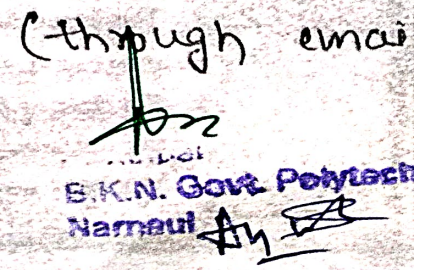 (through emai
B.K.N. Govt. Polytech
Narnaul